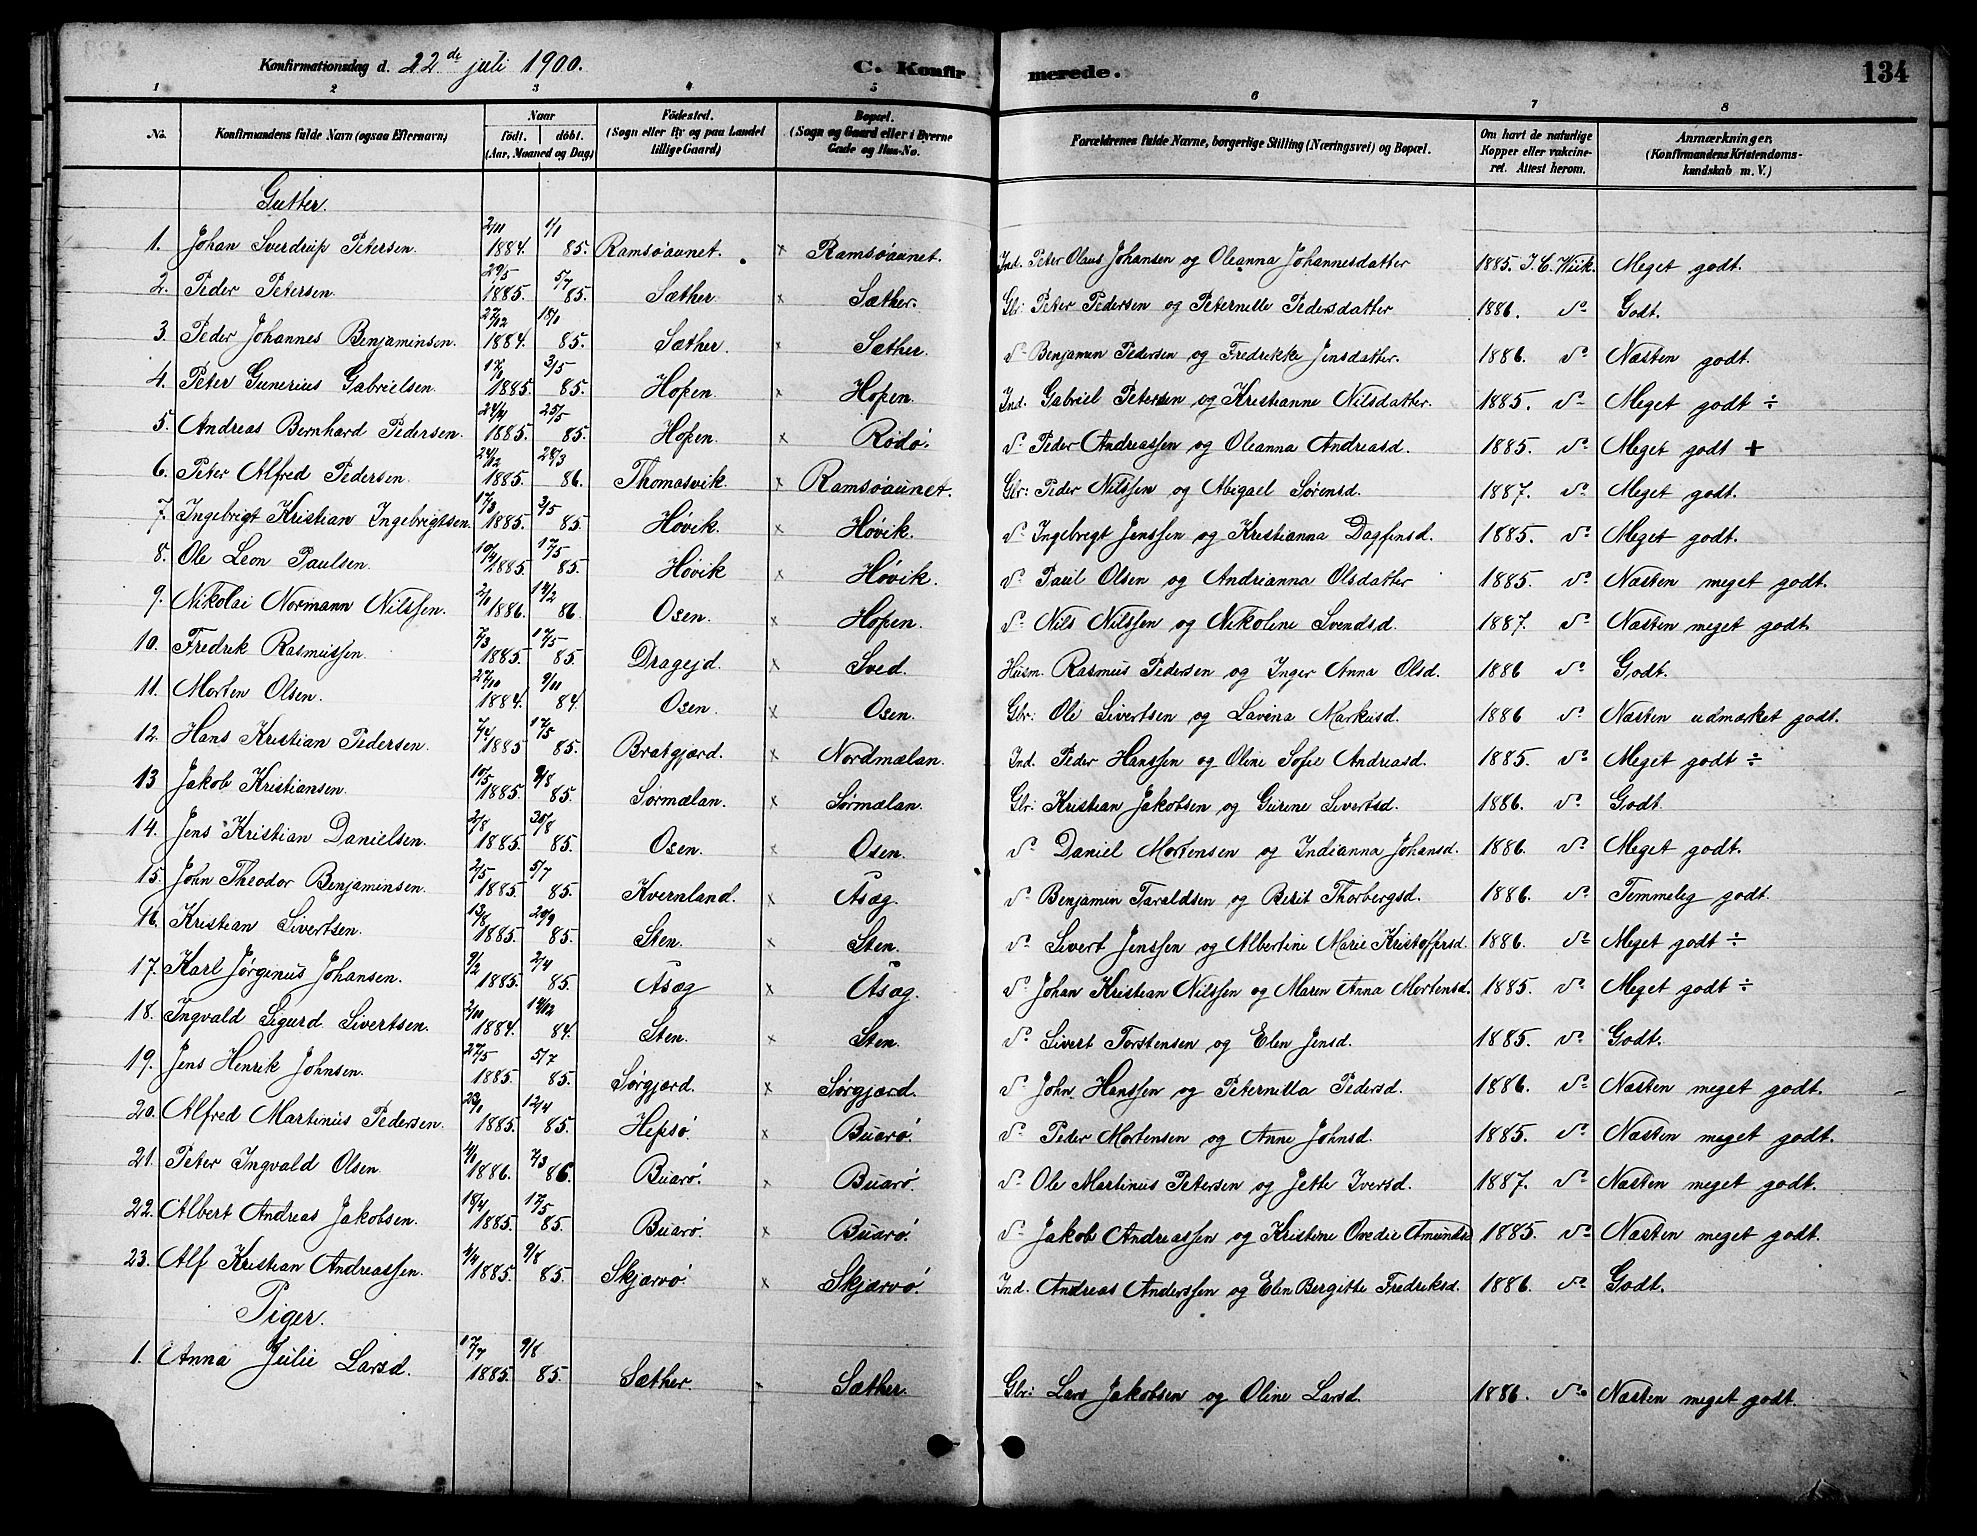 Konfirmationsdag d. 22de juli 1900. C. Konfirmerede. 134
1 2 3 4 5 6 7 8
No. Konfirmandens fulde Navn (ogsaa Efternavn) Naar født. døbt. (Aar, Maaned og Dag) Fødested. (Sogn eller By og paa Landet tillige Gaard) Bopæl. (Sogn og Gaard eller i Byerne Gade og Hus-No. Forældrenes fulde Navne, borgerlige Stilling (Næringsvei) og Bopæl. Om havt de naturlige Kopper eller vakcineret. Attest herom. Anmærkninger, (Konfirmandens Kristendomskundskab m. V.)
Gutter.
1. Johan Sverdrup Petersen. 2/11 1884. 1/1 85. Ramsøaunet. x Ramsøaunet. Ind. Peter Olaus Johansen og Oleanna Johannesdatter 1885. J. C. Wiik. Meget godt.
2. Peder Petersen. 29/5 1885. 5/7 85. Sæther. x Sæther. Gbr: Peter Pedersen og Peternelle Pedersdatter 1886. do Godt.
3. Peder Johannes Benjaminsen. 27/12 1884. 85. Sæther. x Sæther. do Benjamin Pedersen og Fredrikke Jensdatter. 1886. do Næsten godt.
4. Peter Gunerius Gabrielsen. 1885. 3/5 85. Hopen. x Hopen. Ind. Gabriel Petersen og Kristianne Nilsdatter. 1885. do Meget godt ÷
5. Andreas Bernhard Pedersen. 24/4 1885. 25/5 85. Hopen. x Rødø. do Peder Andreassen og Oleanna Andreasd. 1885. do Meget godt +
6. Peter Alfred Pedersen. 24/12 1885. 28/3 86. Thomasvik. x Ramsøaunet. Gbr: Peder Nilssen og Abigael Sørensd. 1887. do Meget godt.
7. Ingebrigt Kristian Ingebrigtsen. 17/3 1885. 3/5 85. Høvik. x Høvik. do Ingebregt Jenssen og Kristianna Dagfinsd. 1885. do Meget godt.
8. Ole Leon Paulsen. 10/4 1885. 17/5 85. Høvik x Høvik. do Paul Olsen og Andrianna Olsdatter 1885. do Næsten meget godt.
9. Nikolai Normann Nilssen. 2/1 1886. 14/2 86. Osen. x Hopen. do Nils Nilssen og Nikoline Svendsd. 1887. do Næsten meget godt
10. Fredrik Rasmussen. 7/3 1885. 17/5 85. Dragejd. x Sved. Husm. Rasmus Pedersen og Inger Anna Olsd. 1886 do Godt.
11. Morten Olsen. 27/10 1884. 9/11 84. Osen. x Osen. Gbr: Ole Sivertsen og Lavina Markusd. 1886 do Næsten udmærket godt.
12. Hans Kristian Pedersen. 1885 17/5 85. Bratgjærd. x Nordmælan. Ind. Peder Hanssen og Oline Sofie Andreasd. 1885. do Meget godt ÷
13 Jakob Kristiansen. 10/5 1885. 9/8 85. Sørmælan. x Sørmælan. Gbr: Kristian Jakobsen og Gurine Sivertsd. 1886. do Godt.
14. Jens Kristian Danielsen. 2/8 1885. 30/8 85. Osen. x Osen. do Daniel Mortensen og Indianna Johansd. 1886. do Meget godt.
15. John Theodor Benjaminsen. 2/5 1885. 5/7 85. Kvernland. x Asæg. do Benjamin Taraldsen og Berit Thorbergsd. 1886. do Temmelig godt.
16. Kristian Sivertsen. 13/8 1885. 20/9 85. Sten. x Sten. do Sivert Jenssen og Albertine Marie Kristoffersd. 1886. do Meget godt ÷
17. Karl Jørginus Johansen. 9/2 1885. 2/4 85. Asæg x Asæg. do Johan Kristian Nilssen og Maren Anna Mortensd. 1885. do Meget godt ÷
18. Ingvald Sigurd Sivertsen. 2/10 1884. 14/12 84. Sten. x Sten. do Sivert Torstensen og Elen Jensd. 1885. do Godt.
19. Jens Henrik Johnsen. 27/5 1885. 5/7 85. Sørgjærd. x Sørgjærd. do John Hanssen og Peternilla Pedersd. 1886. do Næsten meget godt.
20. Alfred Martinus Pedersen. 1885. 12/4 85. Hepsø. x Buarø. do Peder Mortensen og Anne Johnsd. 1885. do Næsten meget godt.
21. Peter Ingvald Olsen. 4/1 1886. 7/3 86. Buarø. x Buarø. do Ole Martinus Petersen og Jette Iversd. 1887. do Næsten meget godt.
22. Albert Andreas Jakobsen. 18/4 1885. 17/5 85. Buarø. x Buarø. do Jakob Andreassen og Kristine Ovedie Amundsd 1885. do Næsten meget godt.
23. Alf Kristian Andreassen. 4/4 1885. 9/8 85. Skjærvø. x Skjærvø. Ind. Andreas Anderssen og Elen Bergitte Fredriksd. 1886. do Godt.
Piger.
1. Anna Julie Larsd. 17/7 1885. 9/8 85. Sæther. x Sæther. Gbr: Lars Jakobsen og Oline Larsd. 1886. do Næsten meget godt.